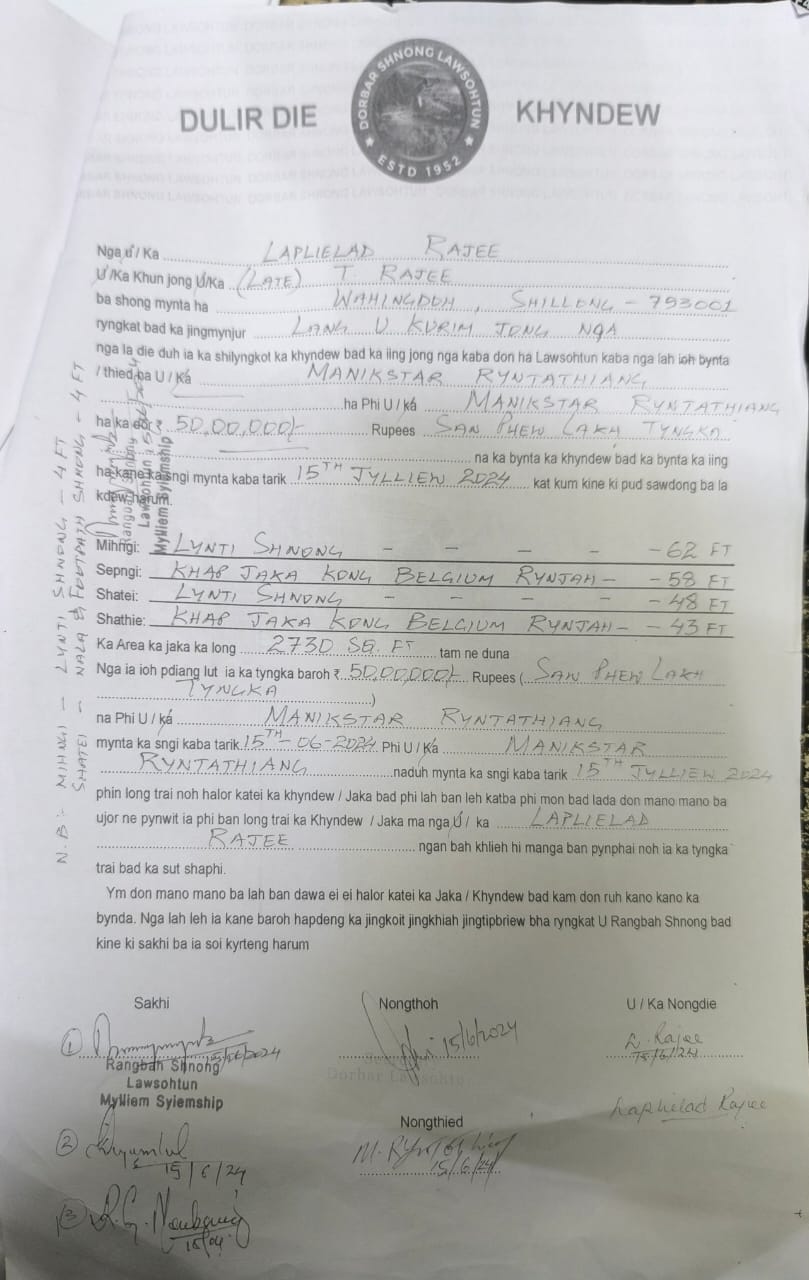 DULIR DIE KHYNDEW
DORBAR SHNONG LAWSOHTUN
ESTD 1952
Nga U / Ka LAPLIELAD RAJEE
U /Ka Khun jong U/Ka (LATE) T. RAJEE
ba shong mynta ha WAHINGDOH, SHILLONG - 793001
ryngkat bad ka jingmynjur LANG U KURIM JONG NGA
nga la die duh ia ka shilyngkot ka khyndew bad ka iing jong nga kaba don ha Lawsohtun kaba nga lah ioh bynta
/ thied ba U / Ka MANIKSTAR RYNTATHIANG
ha Phi U / ka MANIKSTAR RYNTATHIANG
ha ka dor ₹ 50,00,000/- Rupees SAN PHEW LAKH TYNGKA
na ka bynta ka khyndew bad ka bynta ka iing
ha kane ka sngi mynta kaba tarik 15TH JYLLIEW 2024 kat kum kine ki pud sawdong ba la
kdew harum.
Mihngi: LYNTI SHNONG - - - - - 62 FT
Sepngi: KHAP JAKA KONG BELGIUM RYNJAH - - 58 FT
Shatei: LYNTI SHNONG - - - - - 48 FT
Shathie: KHAP JAKA KONG BELGIUM RYNJAH - - 43 FT
Ka Area ka jaka ka long 2730 SQ. FT tam ne duna
Nga ia ioh pdiang lut ia ka tyngka baroh ₹ 50,00,000/- Rupees ( SAN PHEW LAKH
TYNGKA )
na Phi U / ka MANIKSTAR RYNTATHIANG
mynta ka sngi kaba tarik 15TH-06-2024 Phi U / Ka MANIKSTAR
RYNTATHIANG naduh mynta ka sngi kaba tarik 15TH JYLLIEW 2024
phin long trai noh halor katei ka khyndew / Jaka bad phi lah ban leh katba phi mon bad lada don mano mano ba
ujor ne pynwit ia phi ban long trai ka Khyndew / Jaka ma nga U / ka LAPLIELAD
RAJEE ngan bah khlieh hi manga ban pynphai noh ia ka tyngka
trai bad ka sut shaphi.
Ym don mano mano ba lah ban dawa ei ei halor katei ka Jaka / Khyndew bad kam don ruh kano kano ka
bynda. Nga lah leh ia kane baroh hapdeng ka jingkoit jingkhiah jingtipbriew bha ryngkat U Rangbah Shnong bad
kine ki sakhi ba ia soi kyrteng harum
N.B:- MIHNGI - LYNTI SHNONG - 4 FT
SHATEI - NALA & FOOTPATH SHNONG - 4 FT
Rangbah Shnong
Lawsohtun
Mylliem Syiemship
Sakhi Nongthoh U / Ka Nongdie
① 15/06/2024 15/6/2024 L. Rajee
15/6/24
Rangbah Shnong
Lawsohtun
Mylliem Syiemship
Dorbar Lawsohtun
Laplielad Rajee
Nongthied
② 15/6/24
15/6/24
③